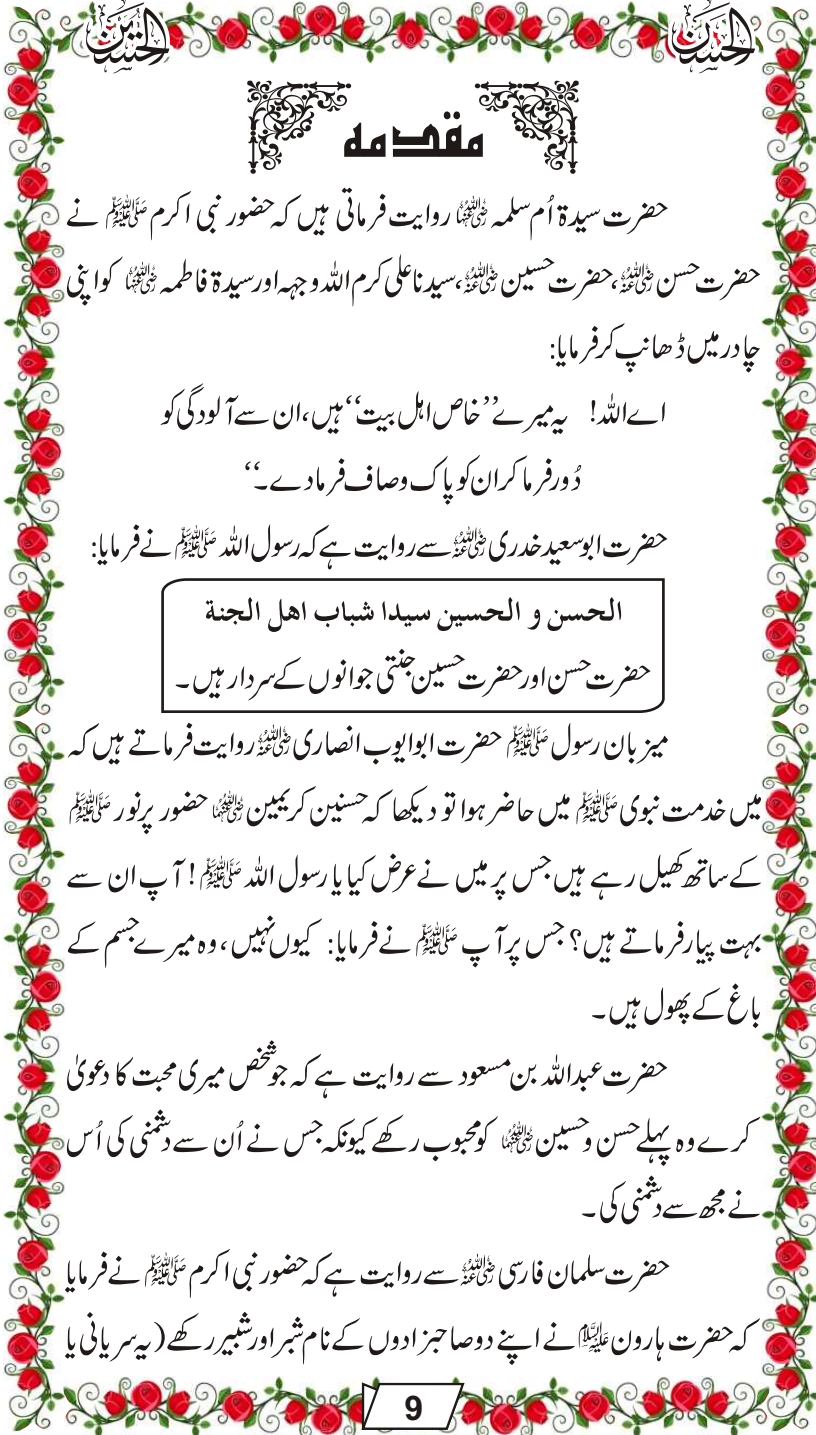 الحسین الحسن
مقدمہ
حضرت سیدۃ اُم سلمہ رضی اللہ عنہا روایت فرماتی ہیں کہ حضور نبی اکرم ﷺ نے
حضرت حسن رضی اللہ عنہ، حضرت حسین رضی اللہ عنہ، سیدنا علی کرم اللہ وجہہ اور سیدۃ فاطمہ رضی اللہ عنہا کو اپنی
چادر میں ڈھانپ کر فرمایا:
اے اللہ! یہ میرے ’’خاص اہل بیت‘‘ ہیں، ان سے آلودگی کو
دُور فرما کر ان کو پاک وصاف فرمادے۔‘‘
حضرت ابوسعید خدری رضی اللہ عنہ سے روایت ہے کہ رسول اللہ ﷺ نے فرمایا:
الحسن و الحسین سیدا شباب اھل الجنة
حضرت حسن اور حضرت حسین جنتی جوانوں کے سردار ہیں۔
میزبان رسول ﷺ حضرت ابوایوب انصاری رضی اللہ عنہ روایت فرماتے ہیں کہ
میں خدمت نبوی ﷺ میں حاضر ہوا تو دیکھا کہ حسنین کریمین رضی اللہ عنہما حضور پرنور ﷺ
کے ساتھ کھیل رہے ہیں جس پر میں نے عرض کیا یا رسول اللہ ﷺ! آپ ان سے
بہت پیار فرماتے ہیں؟ جس پر آپ ﷺ نے فرمایا: کیوں نہیں، وہ میرے جسم کے
باغ کے پھول ہیں۔
حضرت عبداللہ بن مسعود سے روایت ہے کہ جو شخص میری محبت کا دعویٰ
کرے وہ پہلے حسن وحسین رضی اللہ عنہما کو محبوب رکھے کیونکہ جس نے اُن سے دشمنی کی اُس
نے مجھ سے دشمنی کی۔
حضرت سلمان فارسی رضی اللہ عنہ سے روایت ہے کہ حضور نبی اکرم ﷺ نے فرمایا
کہ حضرت ہارون علیہ السلام نے اپنے دو صاحبزادوں کے نام شبر اور شبیر رکھے (یہ سریانی یا
9